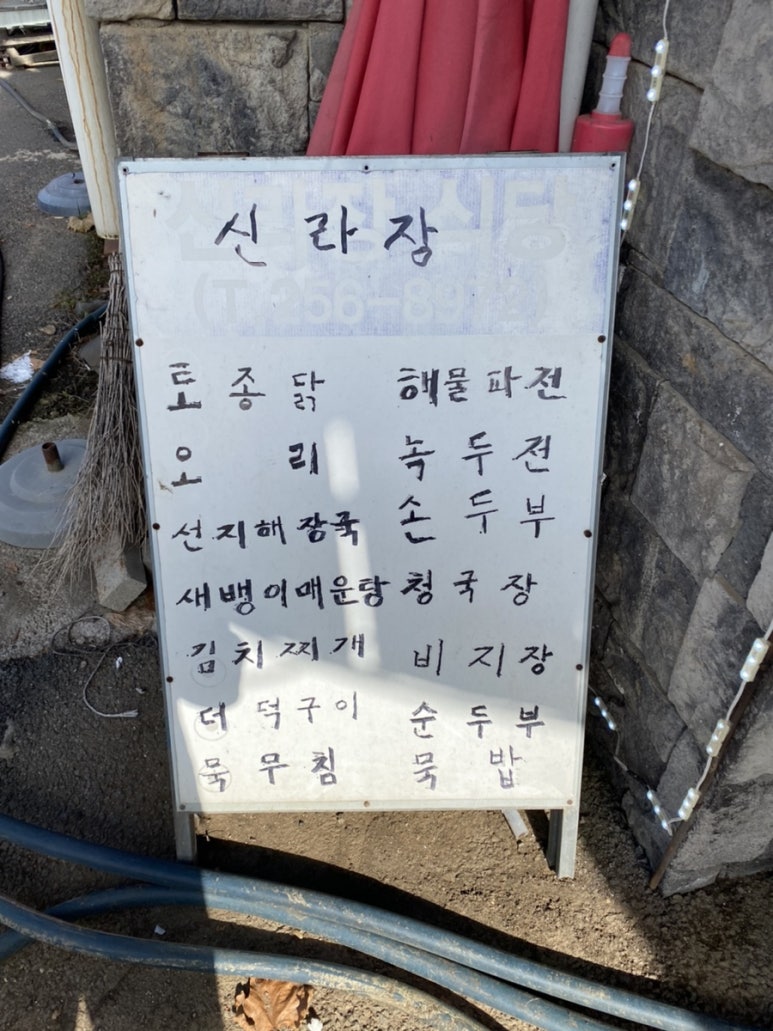 신라장 식당
신라장
(T.256-8972)
토종닭 해물파전
오리 녹두전
선지해장국 손두부
새뱅이매운탕 청국장
김치찌개 비지장
더덕구이 순두부
묵무침 묵밥